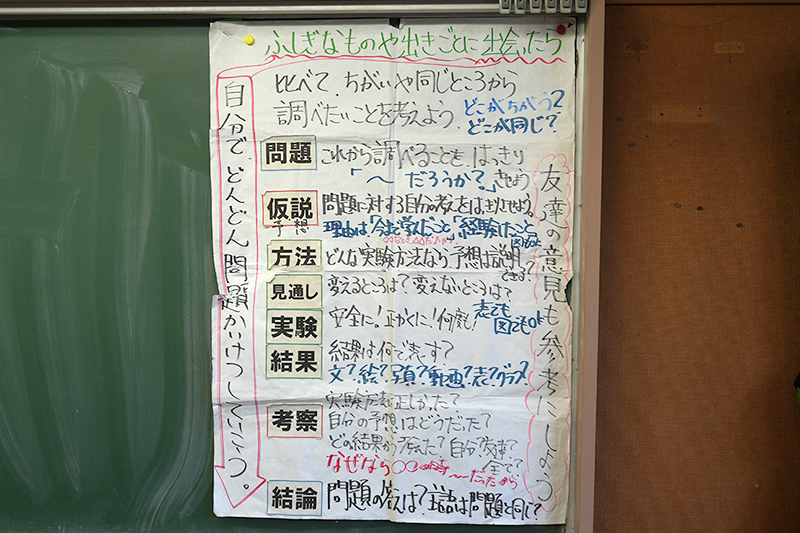 ふしぎなものや出きごとに出会ったら
比べて、ちがいや同じところから
調べたいことを考えよう
どこがちがう?
どこが同じ?
自分で どんどん 問題かいけつしていこう。
友達の意見も参考にしよう
問題
これから調べることを、はっきり
「〜だろうか?」させよう
仮説
予想
問題に対する自分の考えをはっきりさせよう。
理由は「今まで学んだこと」「経験したこと」
方法
どんな実験方法なら、予想は説明
できる?
見通し
変えるところは?変えないところは?
実験
安全に!正かくに!何度も!
表でも
図でもOK
結果
結果は何で表す?
文?絵?写真?動画?表?グラフ?
考察
実験方法は正しかった?
自分の予想はどうだった?
どの結果から考えた?自分?友達?
全て?
なぜなら〇〇の時
〜だったから
結論
問題の答えは?主語は問題と同じ?